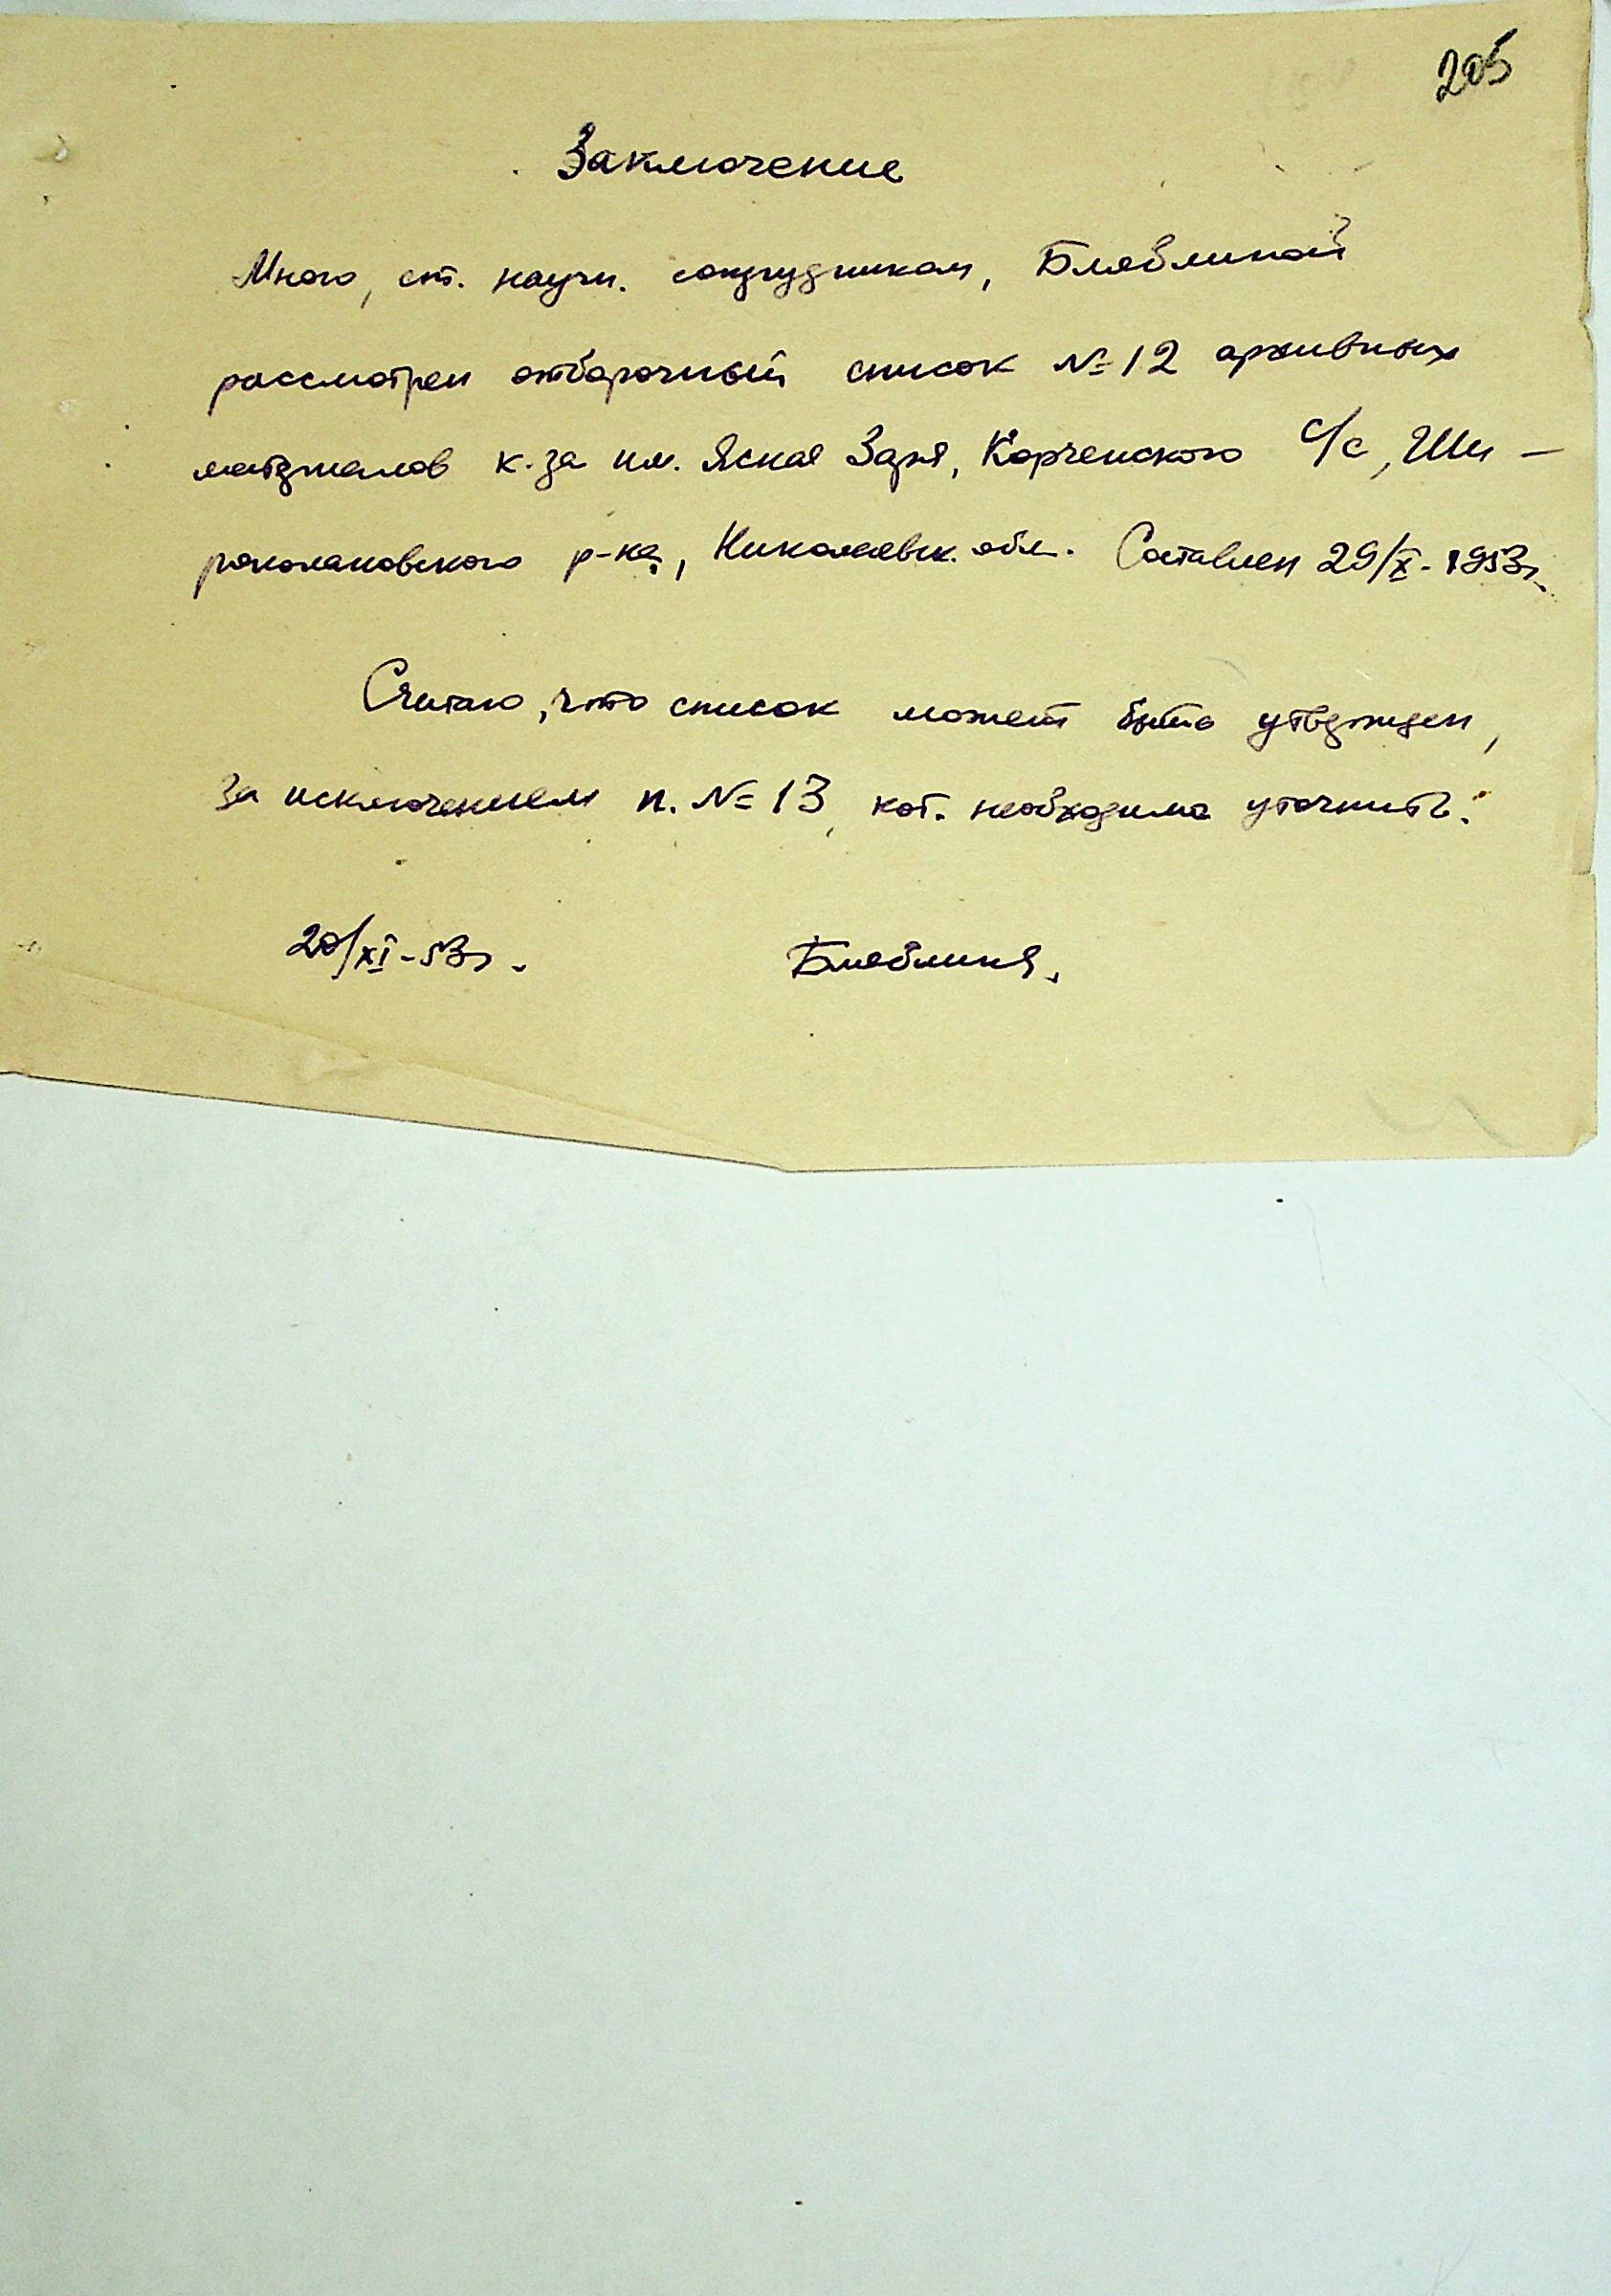 205
Заключение
Мною, ст. научн. сотрудником, Бляблиной
рассмотрен отборочный список № 12 архивных
материалов к-за им. Ясная Заря, Корченского С/с, Ши-
роколановского р-на, Николаевск. обл. Составлен 29/X-1953г.
Считаю, что список может быть утвержден,
за исключением п. № 13, кот. необходимо уточнить.
20/XI-53г. Бляблина.